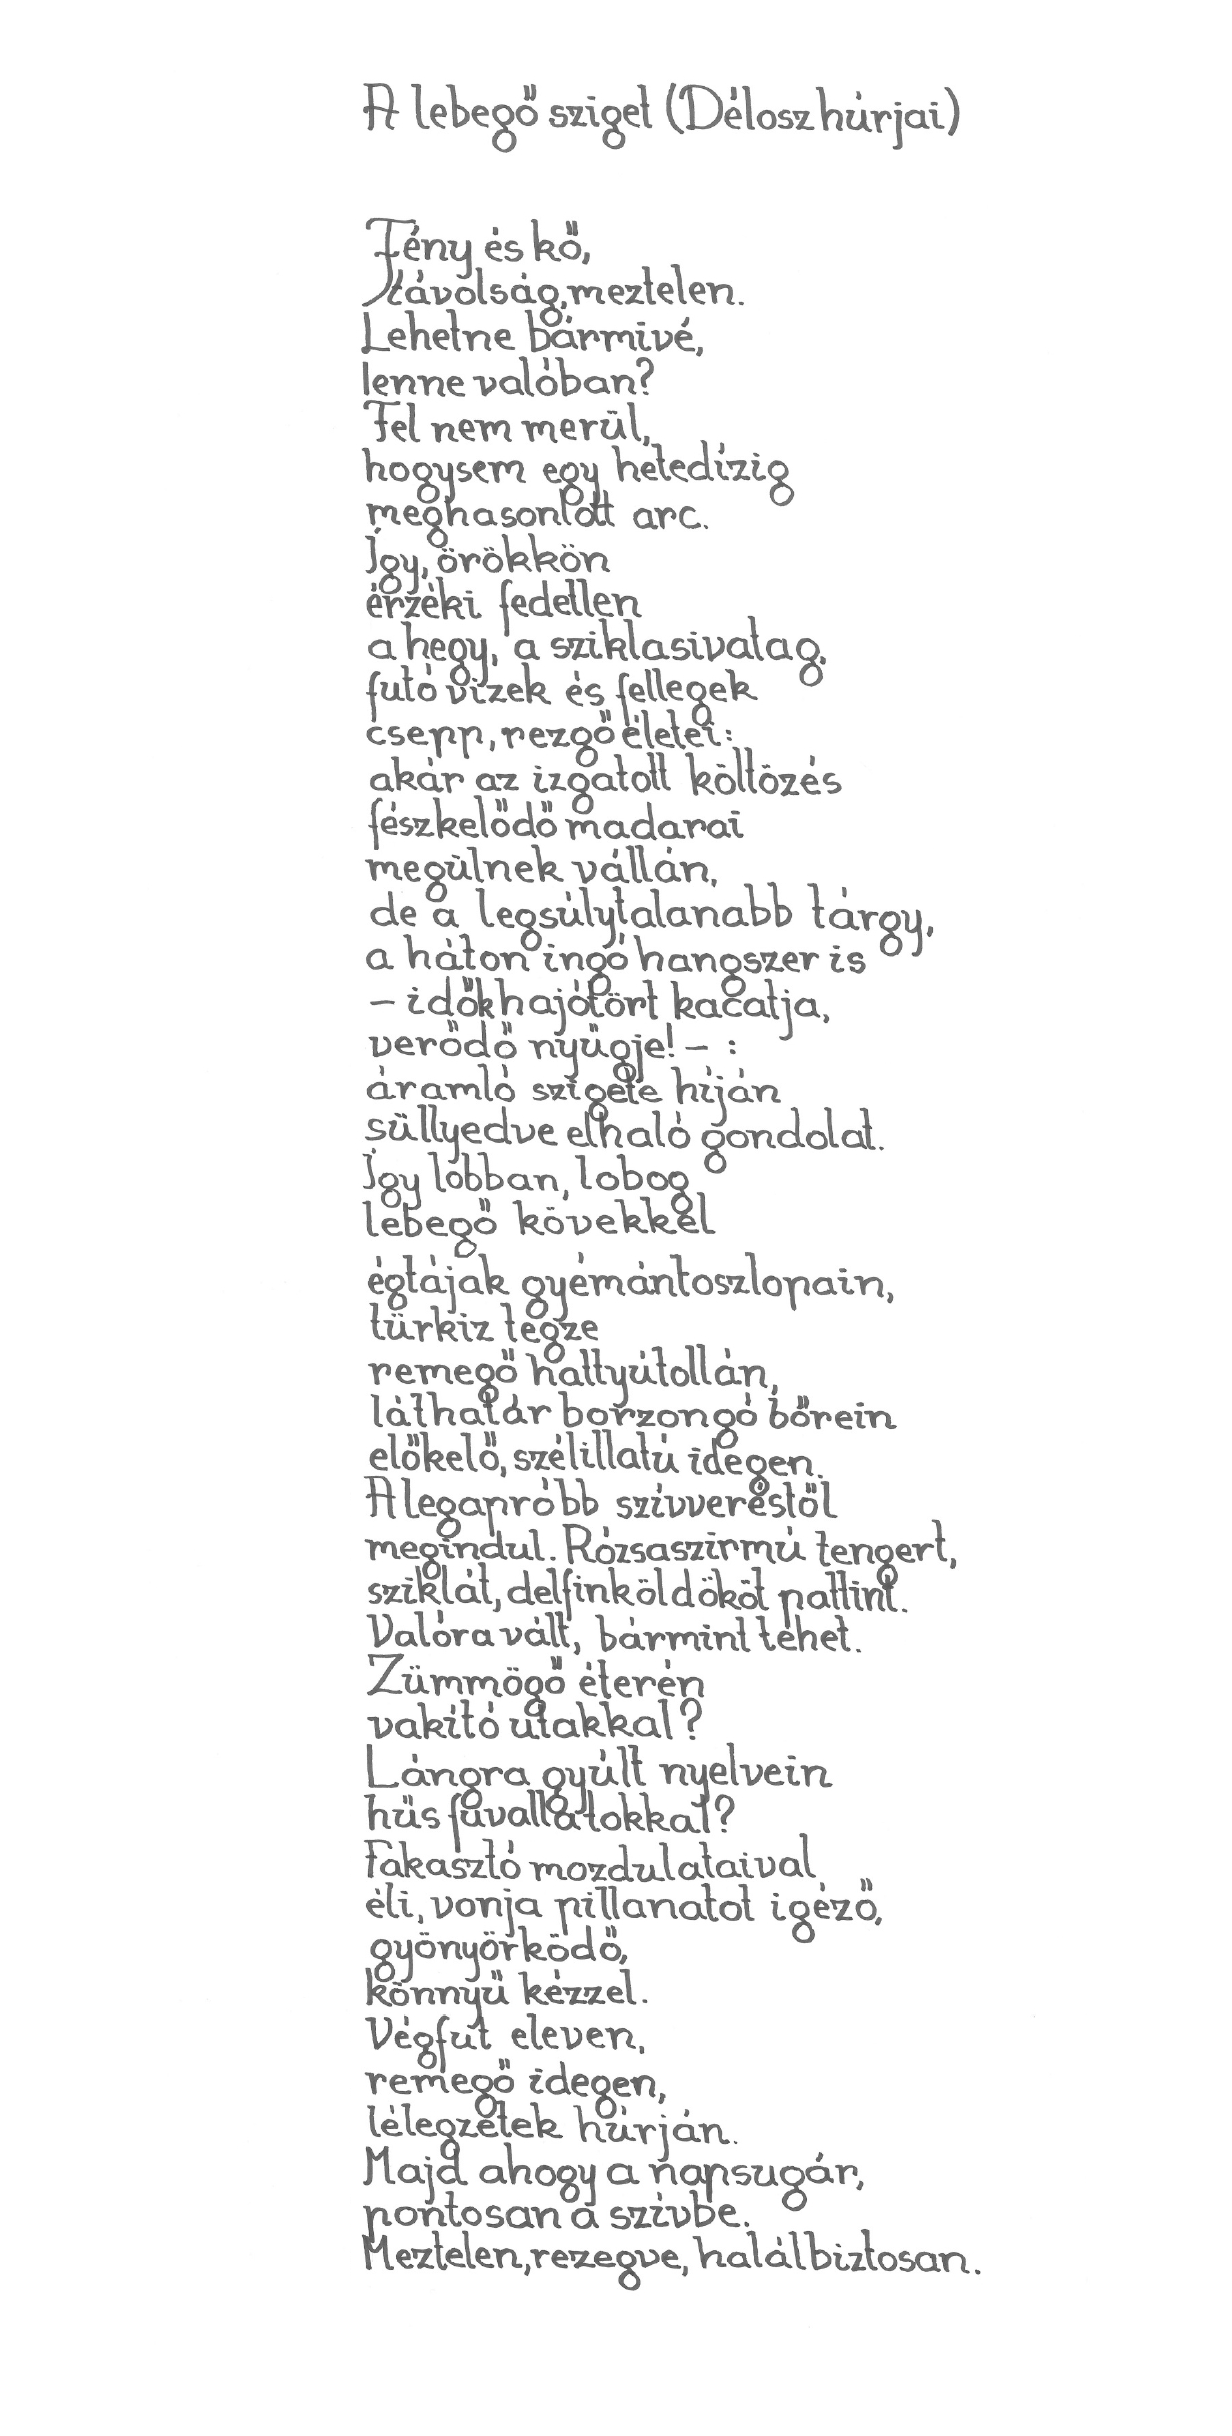 A lebegő sziget (Délosz húrjai)
Fény és kő,
távolság, meztelen.
Lehetne bármivé,
lenne valóban?
Fel nem merül,
hogysem egy hetedízig
meghasonlott arc.
Így, örökkön
érzéki fedetlen
a hegy, a sziklasivatag,
futó vizek és fellegek
csepp, rezgő életei:
akár az izgatott költözés
fészkelődő madarai
megülnek vállán,
de a legsúlytalanabb tárgy,
a háton ingó hangszer is
– idők hajótört kacatja,
verődő nyűgje! – :
áramló szigete híján
süllyedve elhaló gondolat.
Így lobban, lobog
lebegő kövekkel
égtájak gyémántoszlopain,
türkiz tegze
remegő hattyútollán,
láthatár borzongó bőrein
előkelő, szélillatú idegen.
A legapróbb szívveréstől
megindul. Rózsaszirmú tengert,
sziklát, delfinköldököt pattint.
Valóra vált, bármint tehet.
Zümmögő éterén
vakító utakkal?
Lángra gyúlt nyelvein
hűs fuvallatokkal?
Fakasztó mozdulataival
éli, vonja pillanatot igéző,
gyönyörködő,
könnyű kézzel.
Végfut eleven,
remegő idegen,
lélegzetek húrján.
Majd ahogy a napsugár,
pontosan a szívbe.
Meztelen, rezegve, halálbiztosan.